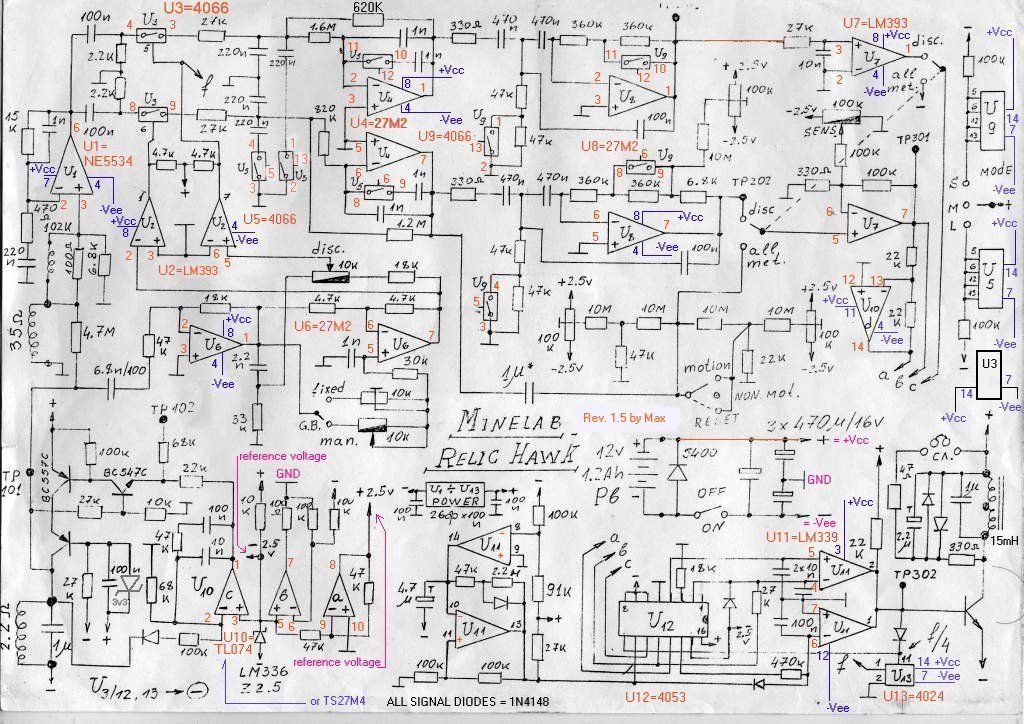 U3=4066
620K
100n
3
4
U3
5
27K
220n
220n
1.6M
11
U5
10
1n
330Ω
470
n
470n
360K
360K
U9
11
10
12
27K
U7=LM393
+Vcc
8
3
1
2
U7
4
-Vee
10n
disc.
all
met.
+Vcc
100K
2.2K
2.2K
f
12
2
3
U4
8
+Vcc
1
4
-Vee
U4=27M2
47K
U9=4066
13
1
2
47K
2
3
U8
1
100n
U8=27M2
+2.5v
100K
-2.5v
10M
-2.5v
100K
SENS.
TP301
100K
5
6
12
13
U
9
14
7
-Vee
MODE
15
K
6
U1=
NE5534
100n
8
9
U3
6
27K
220
n
820
U4
7
6
5
U5
8
9
6
1n
1n
330Ω
470
n
470n
360K
360K
8
9
U9
6
6.8K
TP202
disc
330Ω
100K
+Vcc
7
U1
4
-Vee
2
3
4.7K
4.7K
4
5
3
U5
1
13
2
U5
U5=4066
1.2M
6
5
U8
8
+Vcc
7
4
-Vee
100n
all
met.
6
5
U7
7
S
M
L
470
Ω
102K
220
n
100Ω
6.8K
+Vcc
8
1
U2
2
3
7
U2
4
-Vee
6
5
U2=LM393
disc.
10K
18K
47K
U9
4
5
3
47K
+2.5v
100K
-2.5v
10M
10M
10M
10M
47K
+2.5v
100K
-2.5v
22
K
12
13
U10
+Vcc
11
4
-Vee
14
22
K
a
b
c
5
6
12
13
U
5
14
7
-Vee
100K
35Ω
4.7M
18K
4.7K
4.7K
U6=27M2
2
3
U6
8
+Vcc
1
4
-Vee
6
5
U6
7
1n
30K
47
K
2.2
n
6.8n/100
33
K
fixed
10K
G.B.
man.
10K
1μ
motion
NON mot.
RESET
22K
U3
14
7
+Vcc
-Vee
MINELAB
RELIC HAWK
Rev. 1.5 by Max
3 x 470μ/16v
+ = +Vcc
12v
1.2Ah
Pb
5400
OFF
ON
GND
= -Vee
TP102
68K
100K
BC557C
BC547C
22K
TP
101
27K
10K
reference voltage
GND
10
K
2.5
v
100
Ω
100
K
10
K
+2.5v
100
n
U1 ÷ U13
POWER
26 бр x 100
n
100
n
100K
U11=LM339
+Vcc
5
3
4
U11
2
22
K
47
Ω
2.2
μ
1μ
сл.
330Ω
15mH
100
n
10
n
47
K
27
K
100n
3v3
68
K
U10
1
C
2
3
7
B
5
6
8
a
9
10
47
K
47K
U10=
TL074
1μ
2.2Ω
100K
LM336
Z2.5
reference voltage
14
U11
8
9
4.7
μ
47K
2.2M
10
11
U11
13
91K
27K
100K
100K
a
b
c
18K
U12
16
2.5
v
27
K
2x10
n
100
n
7
6
U11
1
12
-Vee
470K
TP302
f/4
f
1
11
2
U13
14
+Vcc
7
-Vee
U3/12, 13 → ⊖
or TS27M4
ALL SIGNAL DIODES = 1N4148
U12=4053
U13=4024